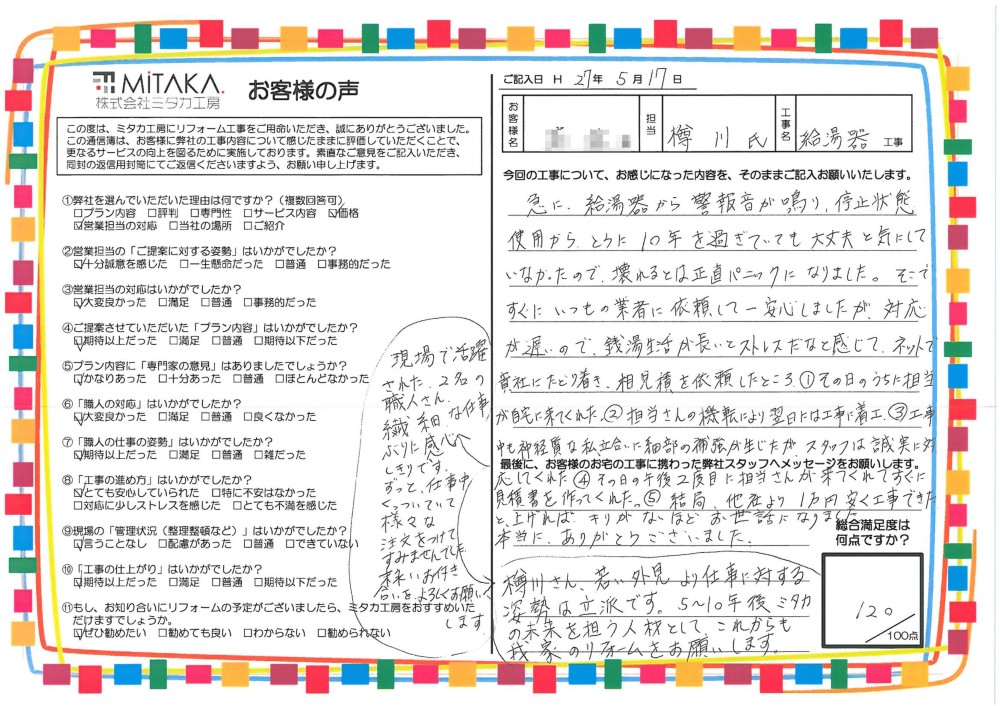 MiTAKA.
株式会社ミタカ工房
お客様の声
この度は、ミタカ工房にリフォーム工事をご用命いただき、誠にありがとうございました。
この通信簿は、お客様に弊社の工事内容について感じたままに評価していただくことで、
更なるサービスの向上を図るために実施しております。素直なご意見をご記入いただき、
同封の返信用封筒にてご返信くださいますよう、お願い申し上げます。
①弊社を選んでいただいた理由は何ですか？（複数回答可）
□プラン内容 □評判 □専門性 □サービス内容 ☑価格
☑営業担当の対応 □当社の場所 □ご紹介
②営業担当の「ご提案に対する姿勢」はいかがでしたか？
☑十分誠意を感じた □一生懸命だった □普通 □事務的だった
③営業担当の対応はいかがでしたか？
☑大変良かった □満足 □普通 □事務的だった
④ご提案させていただいた「プラン内容」はいかがでしたか？
☑期待以上だった □満足 □普通 □期待以下だった
⑤プラン内容に「専門家の意見」はありましたでしょうか？
☑かなりあった □十分あった □普通 □ほとんどなかった
⑥「職人の対応」はいかがでしたか？
☑大変良かった □満足 □普通 □良くなかった
⑦「職人の仕事の姿勢」はいかがでしたか？
☑期待以上だった □満足 □普通 □雑だった
⑧「工事の進め方」はいかがでしたか？
☑とても安心していられた □特に不安はなかった
□対応に少しストレスを感じた □とても不満を感じた
⑨現場の「管理状況（整理整頓など）」はいかがでしたか？
☑言うことなし □配慮があった □普通 □できていない
⑩「工事の仕上がり」はいかがでしたか？
☑期待以上だった □満足 □普通 □期待以下だった
⑪もし、お知り合いにリフォームの予定がございましたら、ミタカ工房をおすすめいた
だけますでしょうか。
☑ぜひ勧めたい □勧めても良い □わからない □勧められない
現場で活躍
された、2名の
職人さん、
繊細な仕事
ぶりに感心
しきりです。
ずっと、仕事中
くっついていて
様々な
注文をつけて
すみませんでした
末永いお付き
合いを、よろしくお願い
します。
ご記入日 H 27年 5月17日
お客様名
担当 樽川氏
工事名 給湯器 工事
今回の工事について、お感じになった内容を、そのままご記入お願いいたします。
急に、給湯器から警報音が鳴り、停止状態
使用から、とうに10年を過ぎていても大丈夫と気にして
いなかったので、壊れるとは正直パニックになりました。そこで
すぐにいつもの業者に依頼して一安心しましたが、対応
が遅いので、銭湯生活が長いとストレスだなと感じて、ネットで
貴社にたどり着き、相見積を依頼したところ①その日のうちに担当
が自宅に来てくれた。②担当さんの機転により翌日には工事に着工。③工事
中も神経質な私立合いに細部の補強が生じたが、スタッフは誠実に対
最後に、お客様のお宅の工事に携わった弊社スタッフへメッセージをお願いします。
応してくれた④その日の午後2度目に担当さんが来てくれてすぐに
見積書を作ってくれた。⑤結局、他社より1万円安く工事できた
と、上げれば、キリがないほどお世話になりました
本当に、ありがとうございました。
樽川さん、若い外見より仕事に対する
姿勢は立派です。5〜10年後ミタカ
の未来を担う人材として、これからも
我家のリフォームをお願いします。
総合満足度は
何点ですか？
120
/100点